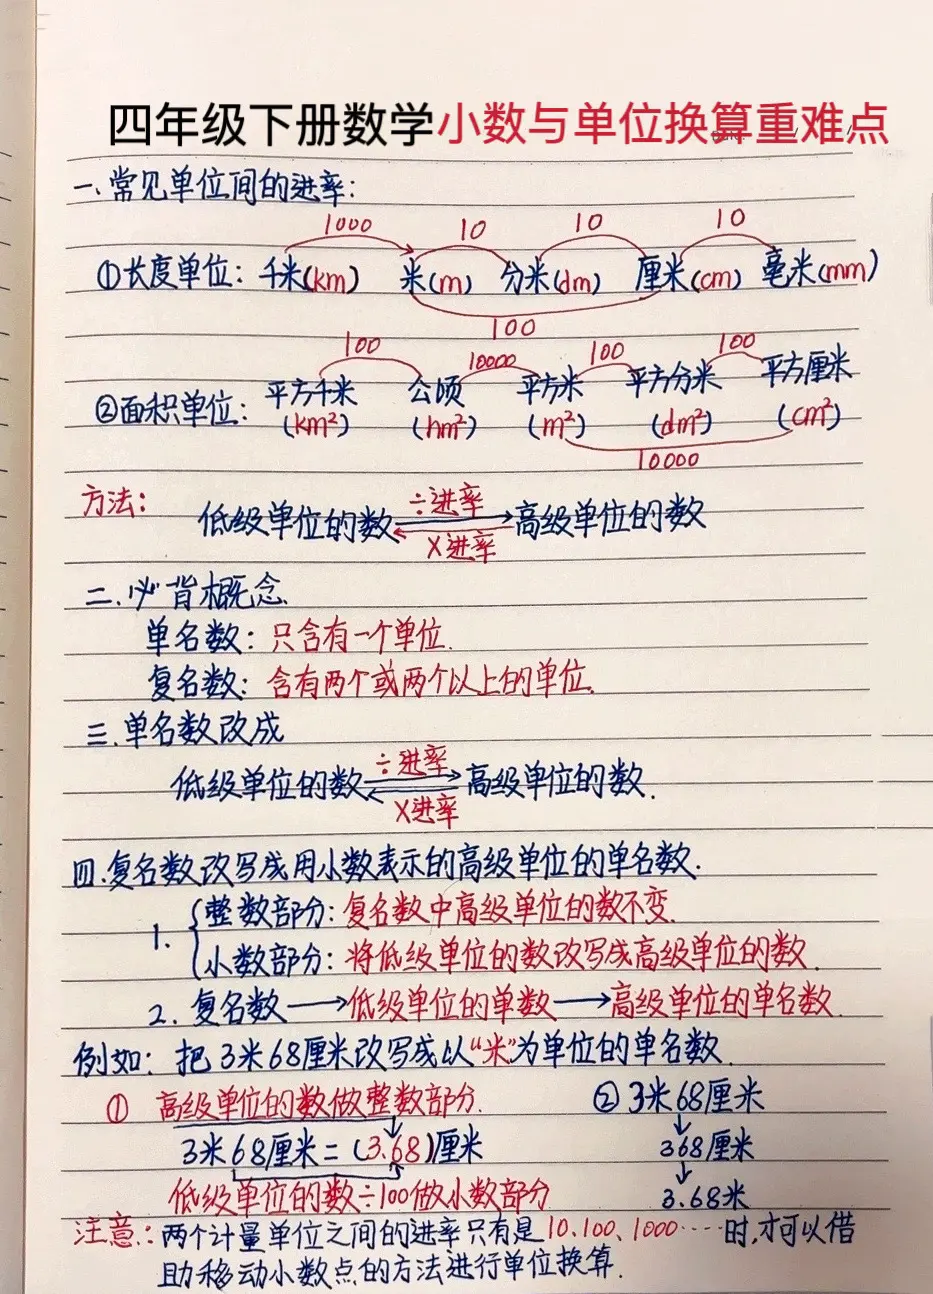 四年级下册数学小数与单位换算重难点
一、常见单位间的进率:
1000 10 10 10
①长度单位: 千米(km) 米(m) 分米(dm) 厘米(cm) 毫米(mm)
100
100 10000 100 100
②面积单位: 平方千米 公顷 平方米 平方分米 平方厘米
(km²) (hm²) (m²) (dm²) (cm²)
10000
方法:
÷进率
低级单位的数 高级单位的数
×进率
二.必背概念.
单名数: 只含有一个单位.
复名数: 含有两个或两个以上的单位.
三.单名数改成
÷进率
低级单位的数 高级单位的数.
×进率
四.复名数改写成用小数表示的高级单位的单名数.
1. {整数部分: 复名数中高级单位的数不变.
小数部分: 将低级单位的数改写成高级单位的数.
2. 复名数→低级单位的单数→高级单位的单名数.
例如: 把3米68厘米改写成以"米"为单位的单名数.
① 高级单位的数做整数部分. ②3米68厘米
3米68厘米=(3.68)厘米 368厘米
低级单位的数÷100做小数部分 3.68米
注意: 两个计量单位之间的进率只有是10.100、1000……时,才可以借
助移动小数点的方法进行单位换算.